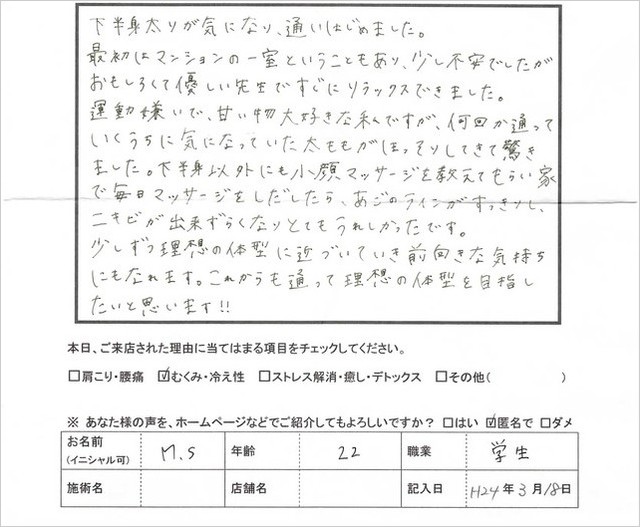 下半身太りが気になり、通いはじめました。
最初はマンションの一室ということもあり、少し不安でしたが
おもしろくて優しい先生ですぐにリラックスできました。
運動嫌いで、甘い物大好きな私ですが、何回か通って
いくうちに気になっていた太ももがほっそりしてきて驚き
ました。下半身以外にも小顔マッサージを教えてもらい家
で毎日マッサージをしだしたら、あごのラインがすっきりし、
ニキビが出来ずらくなりとてもうれしかったです。
少しずつ理想の体型に近づいていき前向きな気持ち
にもなれます。これからも通って理想の体型を目指し
たいと思います!!
本日、ご来店された理由に当てはまる項目をチェックしてください。
□肩こり・腰痛 ☑むくみ・冷え性 □ストレス解消・癒し・デトックス □その他( )
※ あなた様の声を、ホームページなどでご紹介してもよろしいですか? □はい ☑匿名で □ダメ
お名前 (イニシャル可) M.S 年齢 22 職業 学生
施術名 店舗名 記入日 H24年3月18日